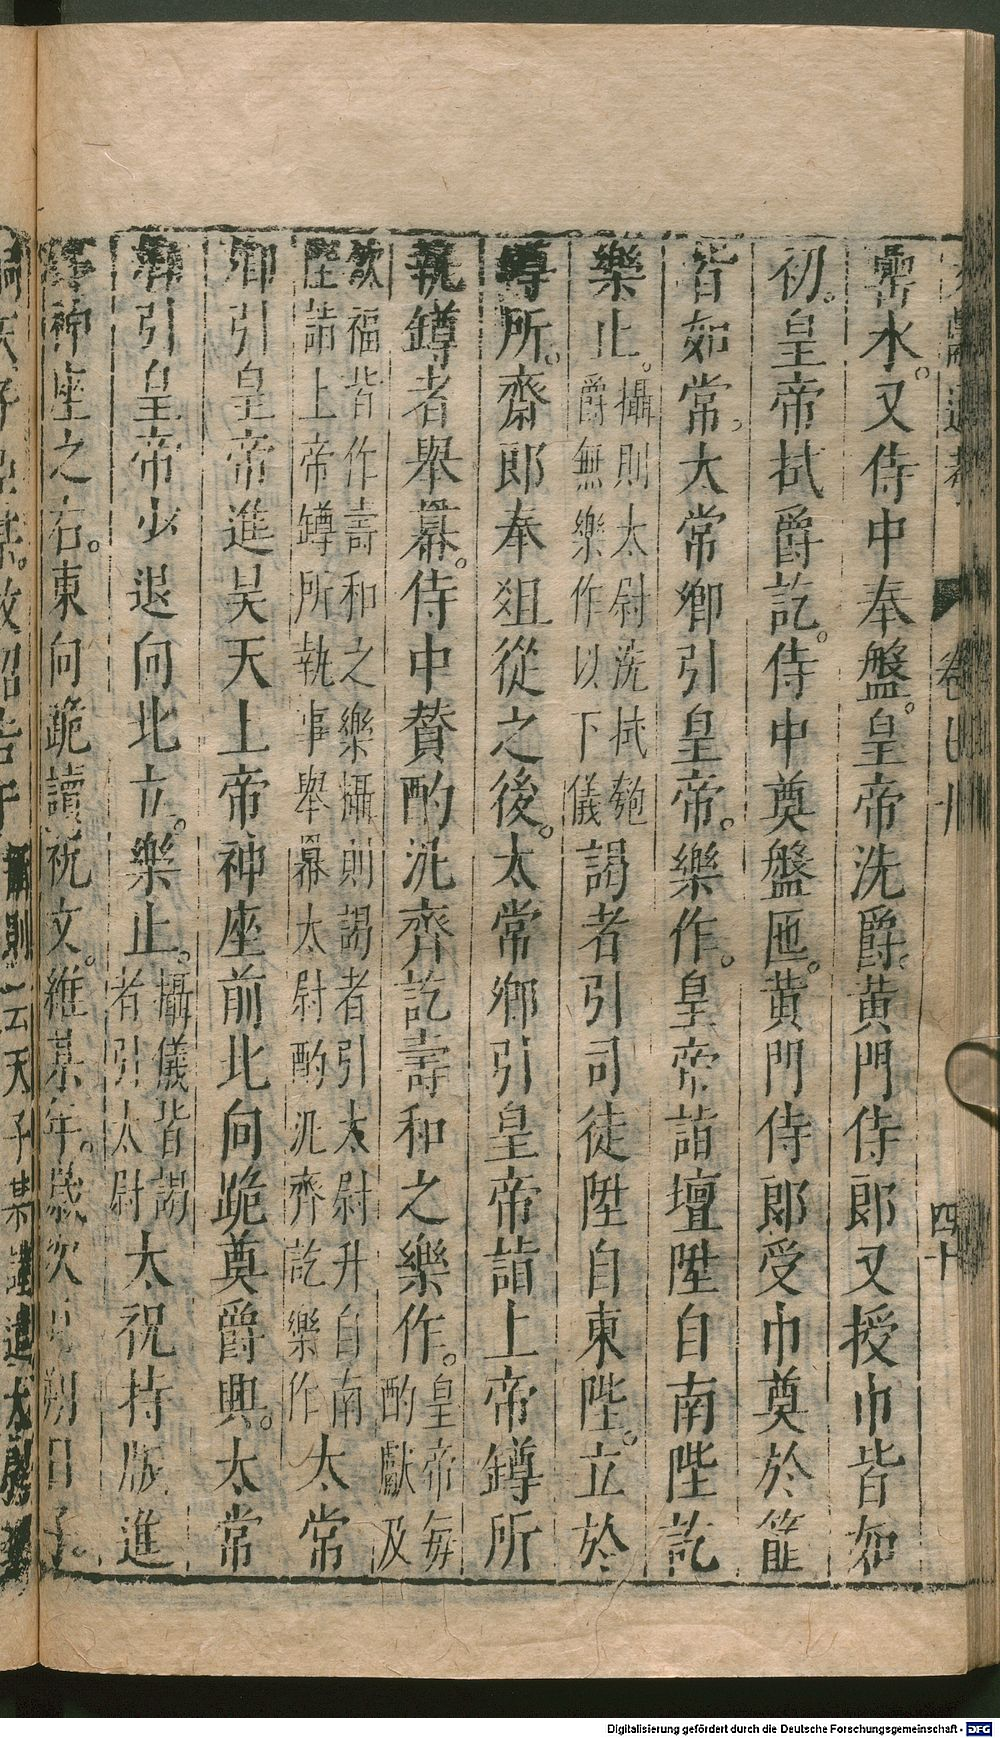 罍水。又侍中奉盤。皇帝洗爵。黃門侍郎又授巾皆如
初。皇帝拭爵訖。侍中奠盤匜。黃門侍郎受巾奠於篚
皆如常。太常卿引皇帝。樂作。皇帝詣壇陞自南陛訖
樂止。攝則太尉洗拭匏爵無樂作以下儀謁者引司徒陞自東陛。立於
罇所。齋郎奉俎從之後。太常卿引皇帝詣上帝罇所
執罇者舉冪。侍中贊酌汎齊訖壽和之樂作。皇帝每酌獻及
飲福皆作壽和之樂攝則謁者引太尉升自南陛詣上帝罇所執事舉冪太尉酌汎齊訖樂作太常
卿引皇帝進昊天上帝神座前北向跪奠爵興。太常
卿引皇帝少退向北立。樂止。攝儀皆謁者引太尉太祝持版進
神座之右。東向跪讀祝文。維某年。歲次月朔日子。
卷四十
四十
云天子某謹遣太尉
Digitalisierung gefördert durch die Deutsche Forschungsgemeinschaft - DFG